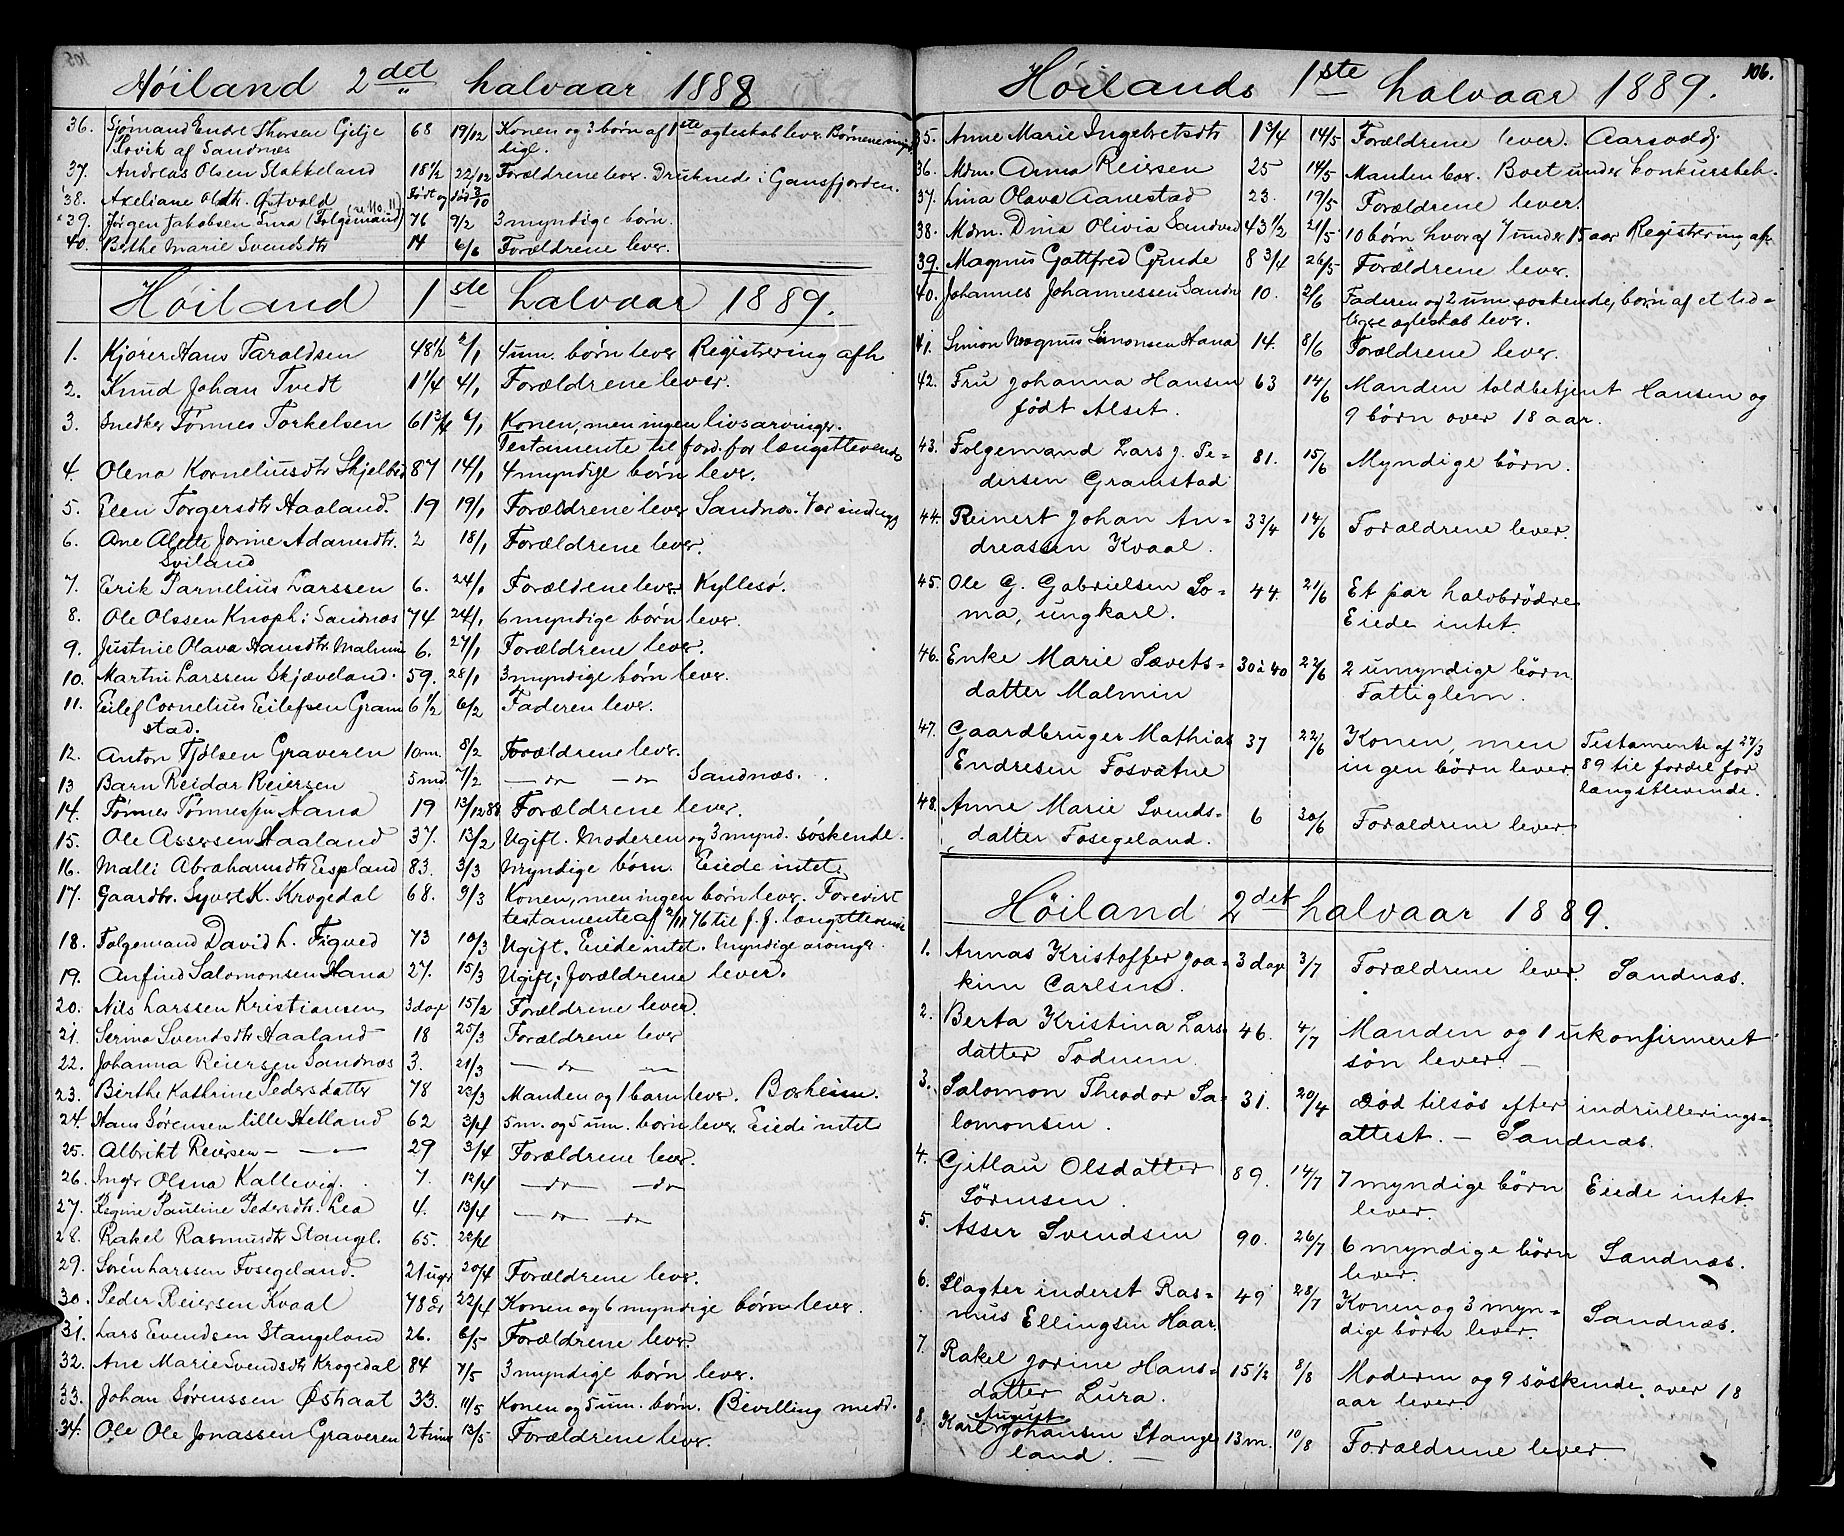 Høiland 2det halvaar 1888
36. Sjømand Endre Thorsen Gjilje 68 19/12 Konen og 3 børn af 1ste ægteskab lever. Børnene
Hovik af Sandnæs
37. Andreas Olsen Stokkeland 18 1/2 22/12 Forældrene lever. Drukned i Gansfjorden.
38. Axeliane Oldtr. Østvold Født og død 3/10
39. Jørgen Jakobsen Lura (Folgemand) 76 9/2 3 myndige børn.
40. Berthe Marie Svendsdtr 14 6/6 Forældrene lever.
Høiland 1ste halvaar 1889.
1. Kjører Hans Taraldsen 48 1/2 2/1 4 um. børn lever Registrering afh
2. Knud Johan Tvedt 1 1/4 4/1 Forældrene lever.
3. Snedker Tønnes Torkelsen 61 3/4 6/1 Konen, men ingen livsarvinger.
Testamente til ford. for længstlevende
4. Olena Korneliusdtr Skjelbred 87 14/1 4 myndige børn lever.
5. Elen Torgersdtr Haaland. 19 19/1 Forældrene lever Sandnæs.
6. Ane Alette Jorine Adamsdtr. 2 18/1 Forældrene lever.
Sviland
7. Erik Parnelius Larssen 6. 24/1 Forældrene lever Kyllesø.
8. Ole Olssen Knoph i Sandnæs 74 24/1 6 myndige børn lever.
9. Justine Olava Hansdtr. Malmin 6. 27/1 Forældrene lever.
10. Martin Larssen Skjæveland. 59. 28/1 3 myndige børn lever.
11. Eilef Cornelius Eilefsen Gram 6 1/2 6/2 Faderen lever.
stad.
12. Anton Fjølsen Graveren 10 m. 8/2 Forældrene lever.
13 Barn Reidar Reiersen 5 md 7/2 — do — do Sandnæs.
14. Tønnes Tønnessen Hana 19 13/12 88 Forældrene lever.
15. Ole Assersen Haaland 37. 13/2 Ugift. Moderen og 3 mynd. søskende.
16. Malli Abrahamsdtr Espland 83. 3/3 Myndige børn. Eiede intet
17. Gaardbr. Syvert K. Krogedal 68. 9/3 Konen, men ingen børn lever. Forevist
testamente af 2/11 76 til f. f. længstlevende
18. Folgemand David L. Figved 73 10/3 Ugift. Eiede intet. Myndige arvinger.
19. Anfind Salomonsen Hana 27. 15/3 Ugift; forældrene lever.
20. Nils Larssen Kristiansen 3 dage 15/2 Forældrene lever.
21. Serina Svendsdtr Haaland 18 25/3 Forældrene lever
22. Johanna Reiersen Sandnæs 3. 21/3 — do —
23. Birthe Kathrine Pedersdatter 78 23/3 Manden og 1 barn lever. Borheim.
24. Hans Sørensen lille Helland 62 3/4 5 m. og 5 um. børn lever. Eiede intet
25. Albrikt Reiersen — — 29 3/4 Forældrene lever.
26. Ingr Olena Kallevig. 7. 12/4 — do — do
27. Regine Pauline Pedersdtr. Lea 4. 13/4 — do — do —
28. Rakel Rasmusdtr Stangel. 65. 22/4
29. Søren Larssen Fosegeland. 2 1 uger 20/4 Forældrene lever.
30. Peder Reiersen Kvaal 78 22/4 Konen og 6 myndige børn lever.
31. Lars Evendsen Stangeland 26. 6/5 Forældrene lever.
32. Ane Marie Svendsdtr Krogedal 84 7/5 3 myndige børn lever.
33. Johan Sørenssen Østraat 33. 11/5 Konen og 5 um. børn. Bevilling medd.
34. Ole Ole Jonassen Graveren 2 timer 13/5 Forældrene lever.
106.
Høilands 1ste halvaar 1889.
35. Anne Marie Ingebretsdtr 1 3/4 14/5 Forældrene lever. Aarsvold
36. Mdm. Anna Reiersen 25 14/5 Manden lev. Boet under konkursbeh.
37. Lina Olava Aanestad 23. 19/5 Forældrene lever.
38. Mdm. Dina Olivia Sandved 43 1/2 21/5 10 børn hvoraf 7 under 15 aar Registrering afh.
39. Magnus Gottfred Grude 8 3/4 26/5 Forældrene lever.
40. Johannes Johannessen Sandn 10. 2/6 Faderen og 2 um. søskende, børn af et tid-
ligere ægteskab lever.
41. Simon Magnus Simonsen Hana 14. 8/6 Forældrene lever.
42. Fru Johanna Hansen 63 14/6 Manden toldbetjent Hansen og
født Alset. 9 børn over 18 aar.
43. Folgemand Lars J. Pe- 81. 15/6 Myndige børn.
dersen Gramstad
44. Reinert Johan An- 3 3/4 14/6 Forældrene lever.
dreassen Kvaal.
45. Ole G. Gabrielsen So- 44. 21/6 Et par halvbrødre
ma, ungkarl. Eiede intet.
46. Enke Marie Sævets- 30 à 40 22/6 2 umyndige børn
datter Malmin Fattiglem.
47. Gaardbruger Mathias 37 22/6 Konen, men Testamente af 27/3
Endresen Fosvatne ingen børn lever 89 til fordel for
længstlevende.
48. Anne Marie Svends- 6 30/6 Forældrene lever
datter Fosegeland.
Høiland 2det halvaar 1889.
1. Annas Kristoffer Joa- 3 dage 3/7 Forældrene lever. Sandnæs.
kim Carlsen.
2. Berta Kristina Lars 46. 4/7 Manden og 1 ukonfirmeret
datter Todnem. søn lever. —
3. Salomon Theodor Sa- 31. 20/4 død tilsøs efter indrullerings-
lomonsen. attest. — Sandnæs.
4. Gitlau Olsdatter 89. 14/7 7 myndige børn Eiede intet.
Sörensen. lever.
5. Asser Svendsen 90. 26/7 6 myndige børn Sandnæs.
lever.
6. Slagter inderst Ras- 49 28/7 Konen og 3 myn-
mus Ellingsen Haar. dige børn lever. Sandnæs.
7. Rakel Jorine Hans- 15 1/2 8/8 Moderen og 9 søskende over 18
datter Lura. aar lever
8. Karl August Johansen Stange 13 m. 10/8 Forældrene lever.
land. —